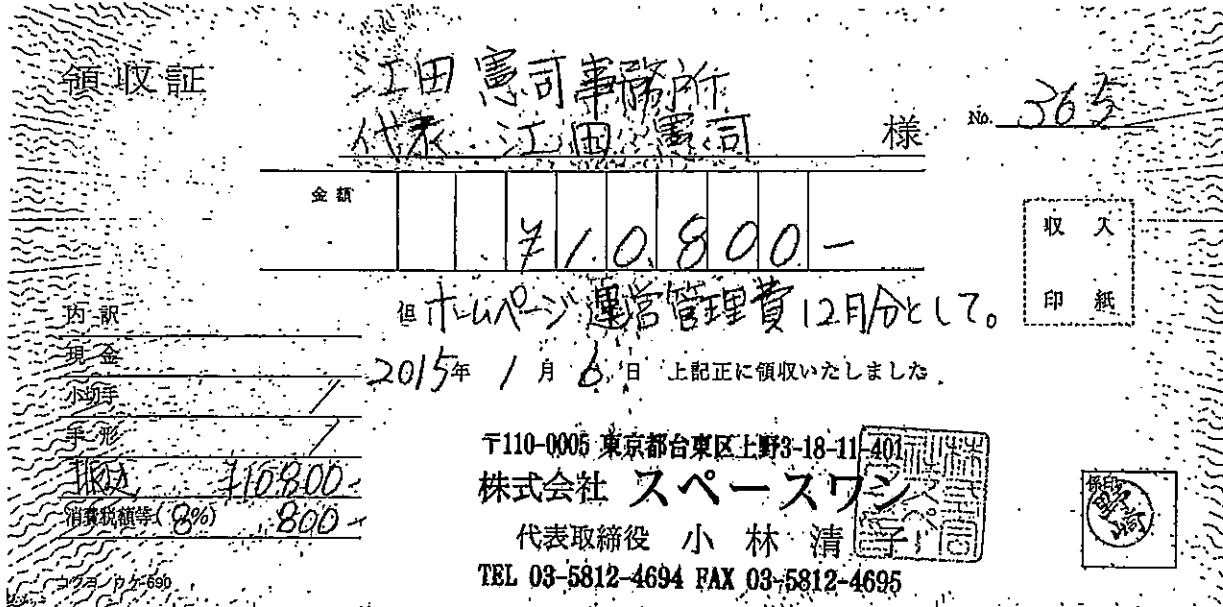 領収証
江田憲司事務所
代表 江田憲司 様
No. 365
金額
¥10,800-
収入
印紙
但 ホームページ運営管理費12月分として。
2015年 1月 6日 上記正に領収いたしました
内訳
現金
小切手 /
手形 /
振込 ¥10,800-
消費税額等(8%) 800-
コクヨ ウケ-690
〒110-0005 東京都台東区上野3-18-11-401
株式会社 スペースワン
代表取締役 小林清子
TEL 03-5812-4694 FAX 03-5812-4695
係印